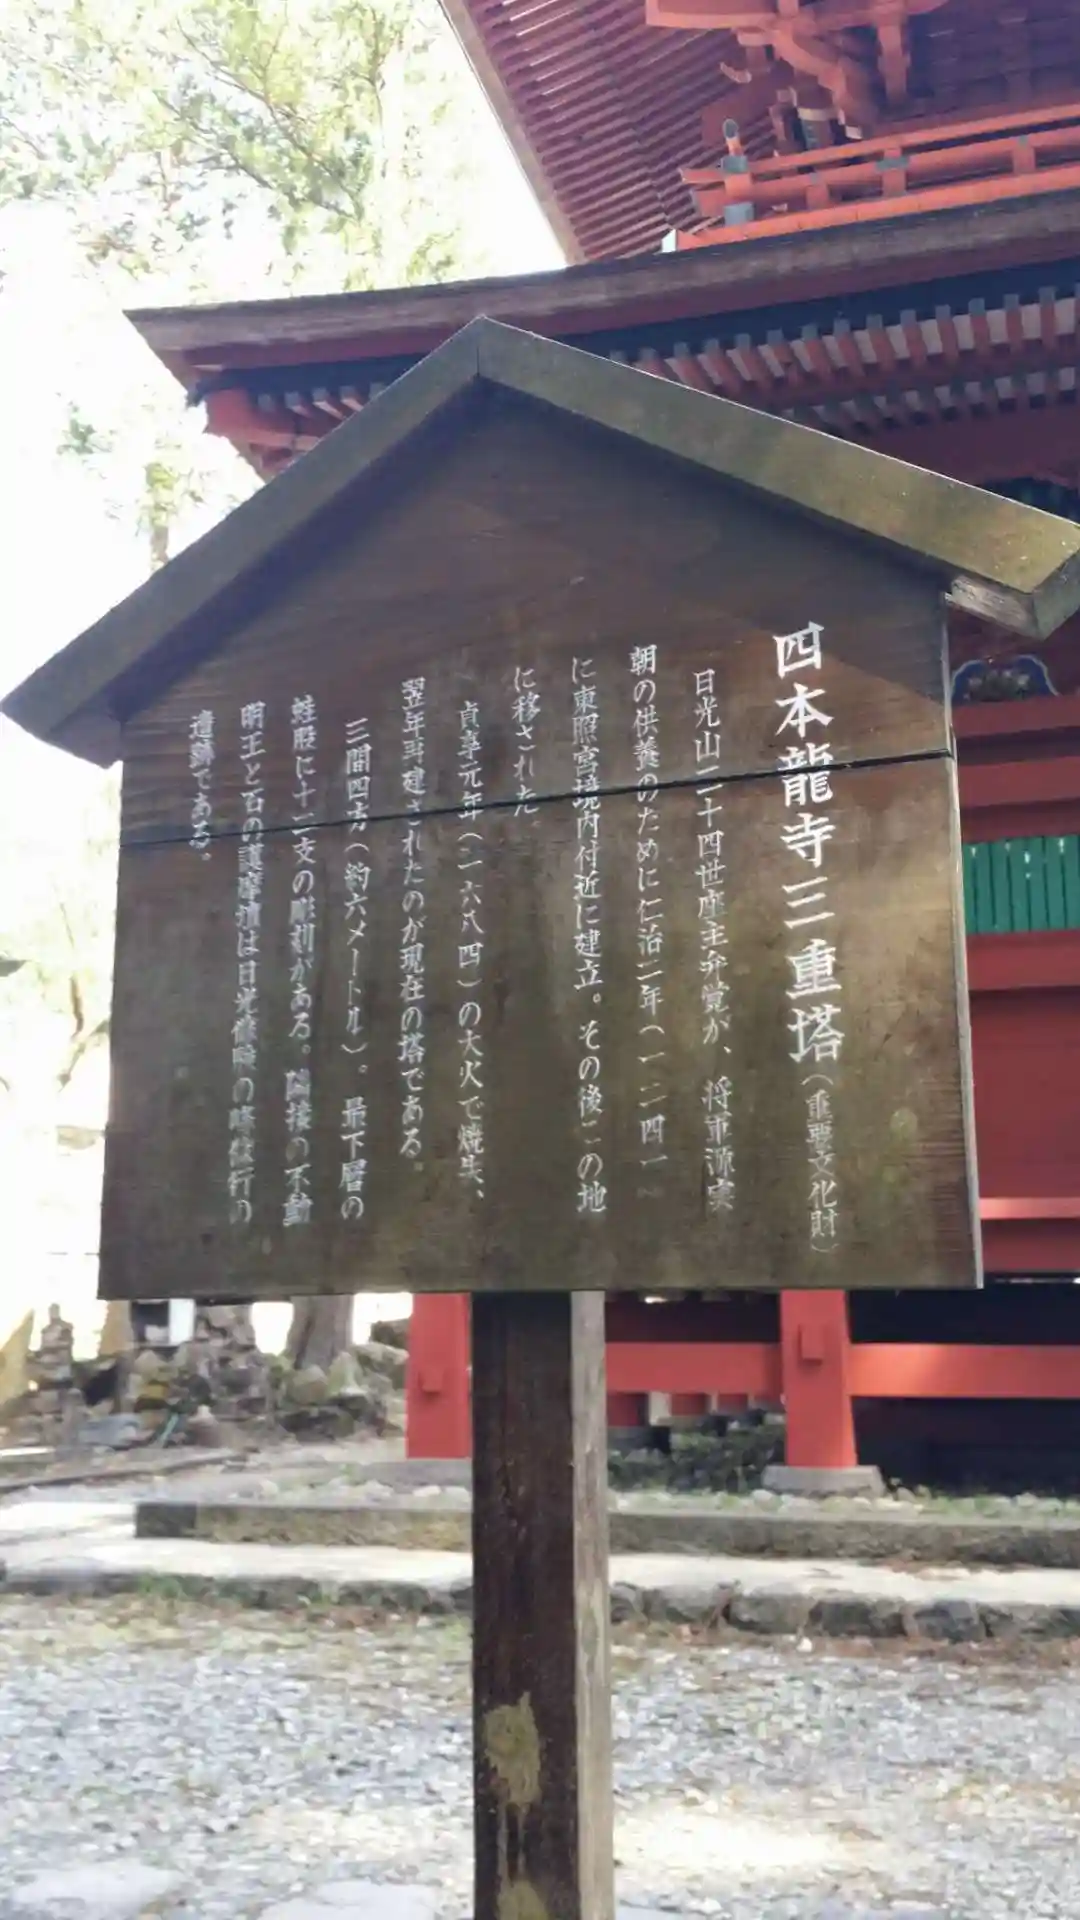 四本龍寺三重塔（重要文化財）
日光山二十四世座主弁覚が、将軍源実
朝の供養のために仁治二年（一二四一
に東照宮境内付近に建立。その後この地
に移された。
貞享元年（一六八四）の大火で焼失、
翌年再建されたのが現在の塔である。
三間四方（約六メートル）。最下層の
蛙股に十二支の彫刻がある。隣接の不動
明王と石の護摩壇は日光修験の峰修行の
遺跡である。